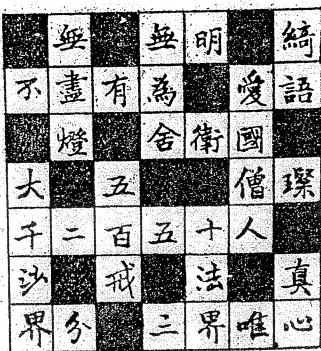 無 無明 綺
不盡有為 愛語
燈 舍衛國
大 五 僧璨
千二百五十人
沙 戒 法 真
界分 三界唯心